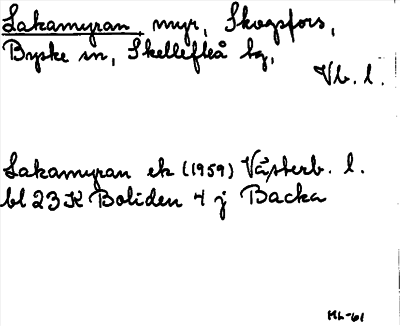 Lakamyran, myr, Skogsfors,
Byske sn, Skellefteå tg,
Vb. l.
Lakamyran ek (1959) Västerb. l.
bl 23 K Boliden 4 j Backa
ML-61